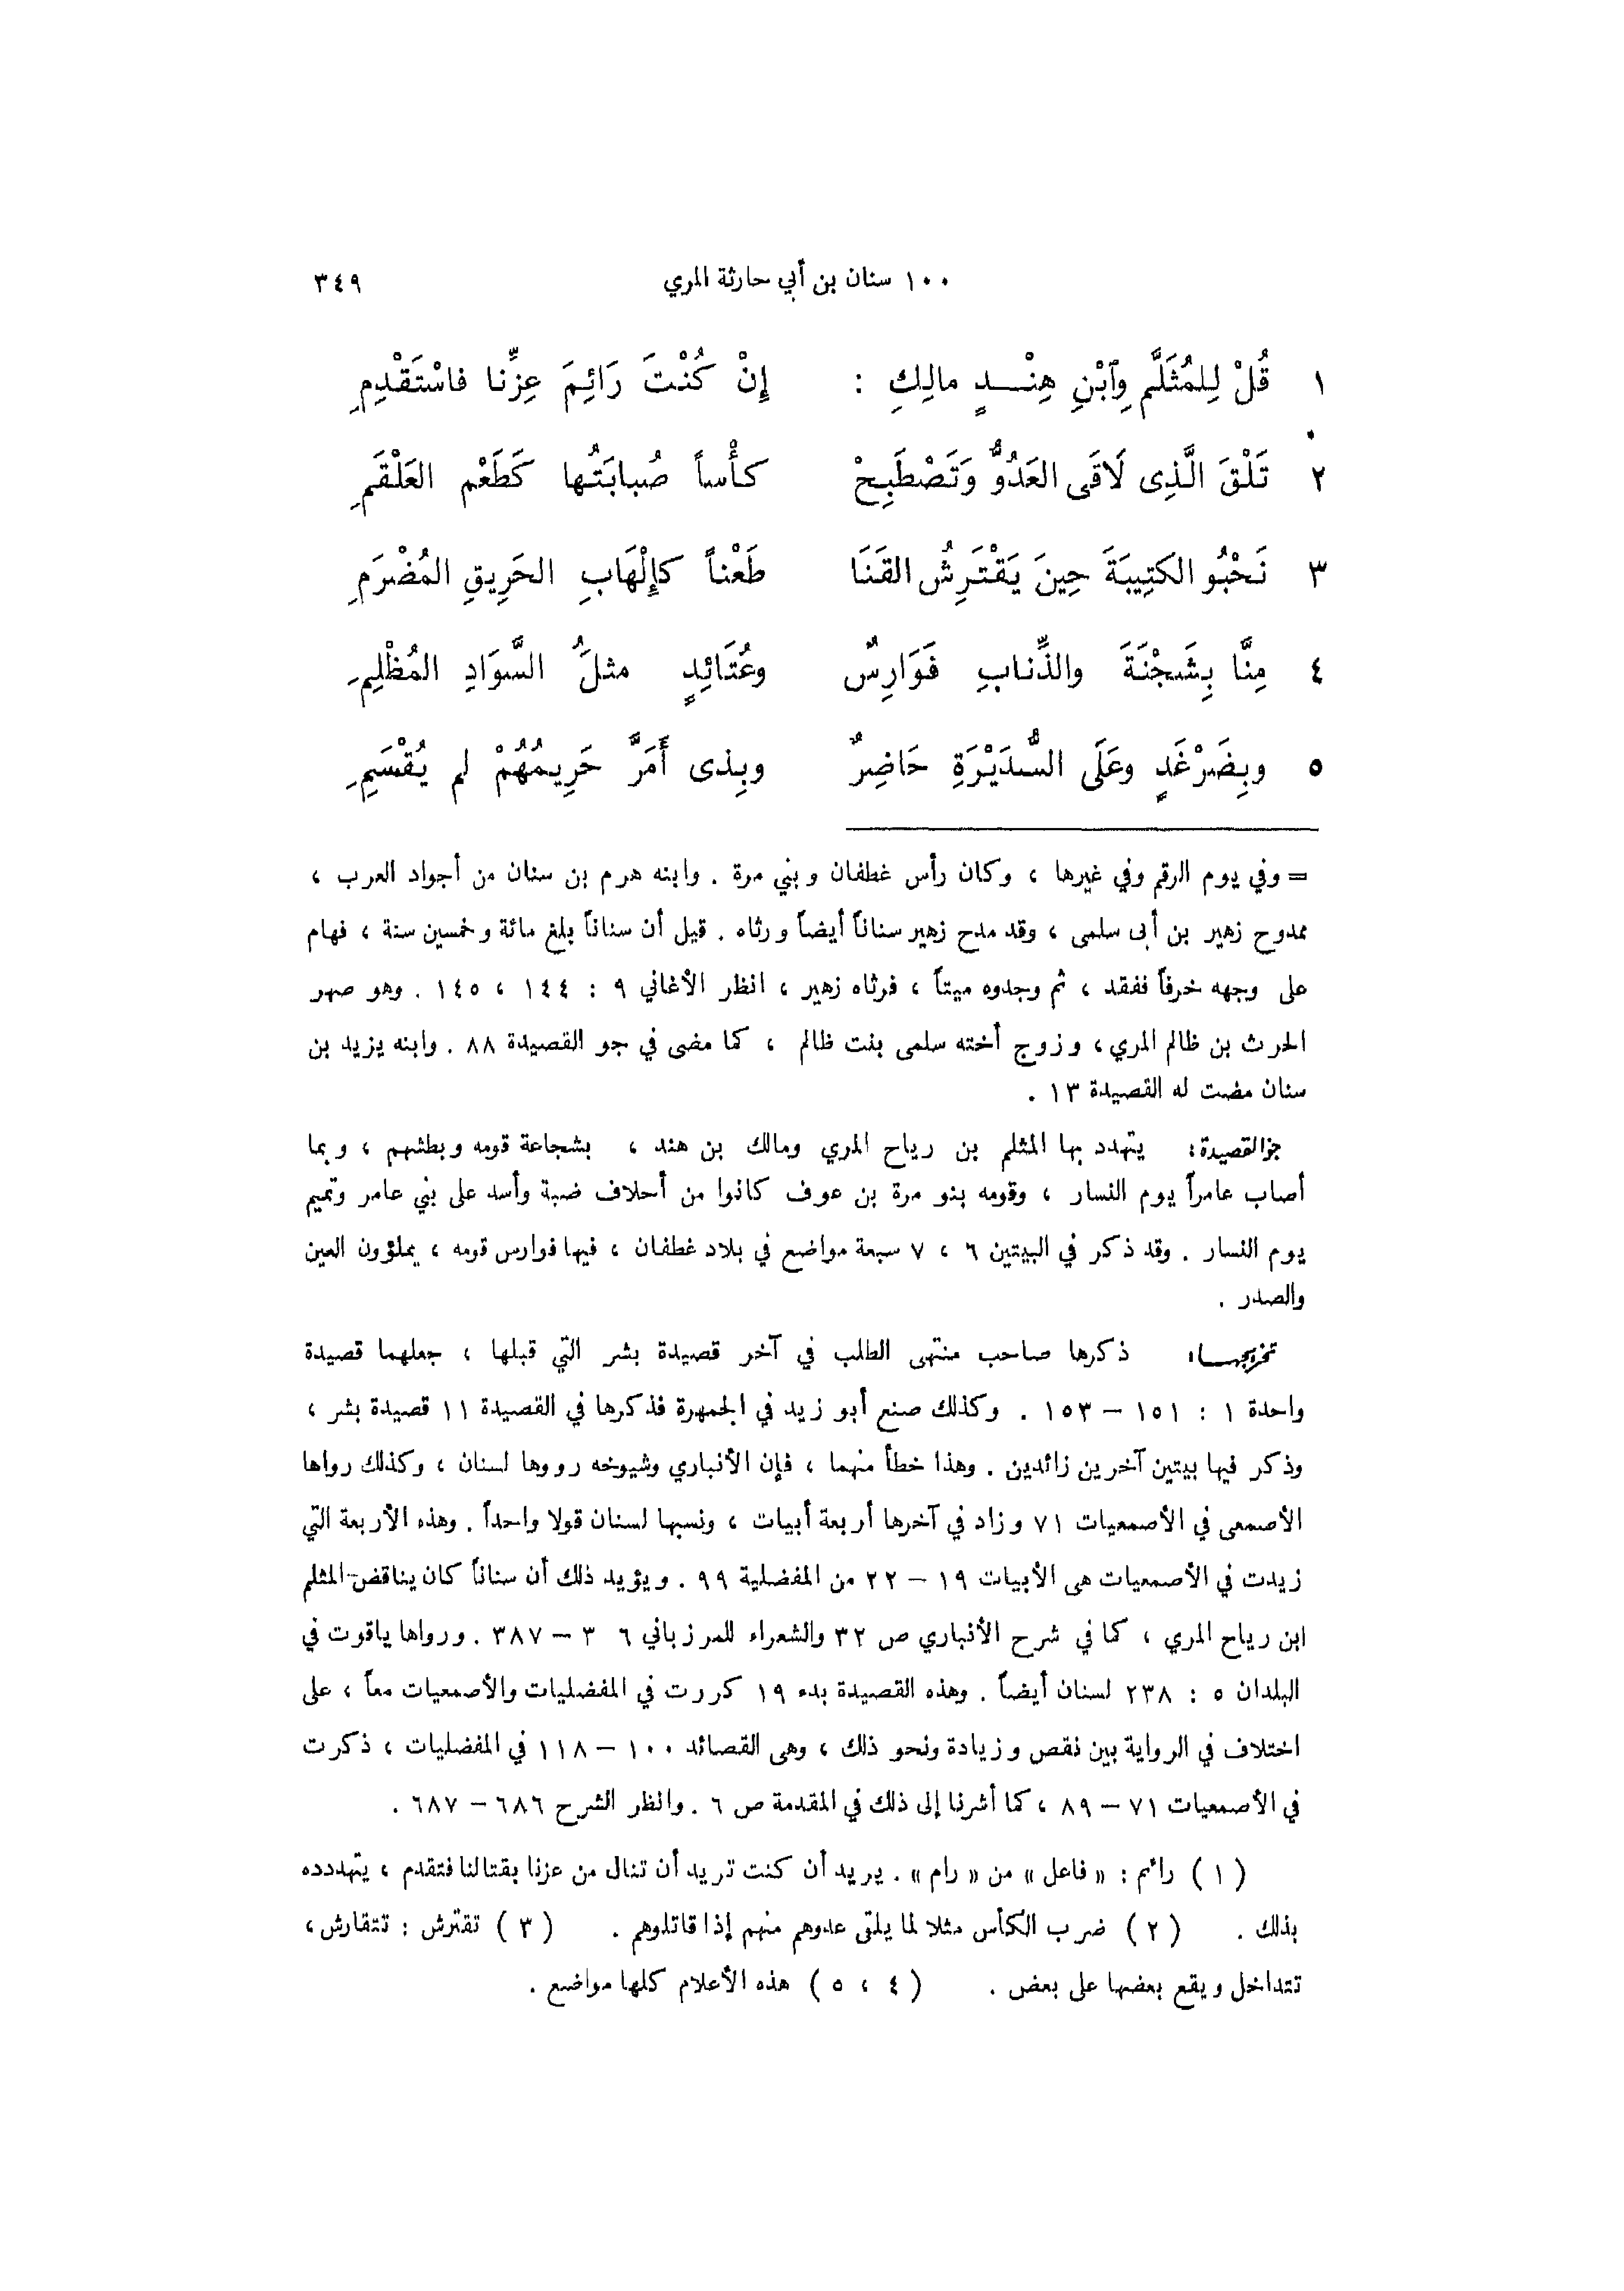 ١٠٠ سنان بن أبي حارثة المري ٣٤٩
١ قُلْ لِلمُثَلَّمِ وٱبْنِ هِنْــدٍ مالِكِ : إِنْ كُنْتَ رَائِمَ عِزِّنا فاسْتَقْدِمِ
٢ تَلْقَ الَّذِى لَاقَى العَدُوُّ وَتَصْطَبِحْ كأْساً صُبابَتُها كَطَعْمِ العَلْقَمِ
٣ نَحْبُو الكَتِيبَةَ حِينَ يَقْتَرِشُ القَنَا طَعْناً كإِلْهَابِ الحَرِيقِ المُضْرَمِ
٤ مِنَّا بِشَجْنَةَ والذِّنابِ فَوَارِسٌ وعُتَائِدٍ مثلُ السَّوَادِ المُظْلِمِ
٥ وبِضَرْغَدٍ وعَلَى السُّدَيْرَةِ حَاضِرٌ وبِذى أَمَرَّ حَرِيمُهُمْ لم يُقْسَمِ
= وفي يوم الرقم وفي غيرها ، وكان رأس غطفان وبني مرة . وابنه هرم بن سنان من أجواد العرب ،
ممدوح زهير بن أبى سلمى ، وقد مدح زهير سناناً أيضاً ورثاه . قيل أن سناناً بلغ مائة وخمسين سنة ، فهام
على وجهه خرفاً ففقد ، ثم وجدوه ميتاً ، فرثاه زهير ، انظر الأغاني ٩ : ١٤٤ ، ١٤٥ . وهو صهر
الحرث بن ظالم المري، وزوج أخته سلمى بنت ظالم ، كما مضى في جو القصيدة ٨٨ . وابنه يزيد بن
سنان مضت له القصيدة ١٣ .
جوالقصيدة: يتهدد بها المثلم بن رياح المري ومالك بن هند ، بشجاعة قومه وبطشهم ، وبما
أصاب عامراً يوم النسار ، وقومه بنو مرة بن عوف كانوا من أحلاف ضبة وأسد على بني عامر وتميم
يوم النسار . وقد ذكر في البيتين ٦ ، ٧ سبعة مواضع في بلاد غطفان ، فيها فوارس قومه ، يملؤون العين
والصدر .
تخريجــها: ذكرها صاحب منتهى الطلب في آخر قصيدة بشر التي قبلها ، جعلهما قصيدة
واحدة ١ : ١٥١ – ١٥٣ . وكذلك صنع أبو زيد في الجمهرة فذكرها في القصيدة ١١ قصيدة بشر ،
وذكر فيها بيتين آخرين زائدين . وهذا خطأ منهما ، فإن الأنباري وشيوخه رووها لسنان ، وكذلك رواها
الأصمعى في الأصمعيات ٧١ وزاد في آخرها أربعة أبيات ، ونسبها لسنان قولا واحداً . وهذه الأربعة التي
زيدت في الأصمعيات هى الأبيات ١٩ – ٢٢ من المفضلية ٩٩ . ويؤيد ذلك أن سناناً كان يناقض المثلم
ابن رياح المري ، كما في شرح الأنباري ص ٣٢ والشعراء للمرزباني ٦ ٣ – ٣٨٧ . ورواها ياقوت في
البلدان ٥ : ٢٣٨ لسنان أيضاً . وهذه القصيدة بدء ١٩ كررت في المفضليات والأصمعيات معاً ، على
اختلاف في الرواية بين نقص وزيادة ونحو ذلك ، وهى القصائد ١٠٠ – ١١٨ في المفضليات ، ذكرت
في الأصمعيات ٧١ – ٨٩ ، كما أشرنا إلى ذلك في المقدمة ص ٦ . وانظر الشرح ٦٨٦ – ٦٨٧ .
( ١ ) رائم : « فاعل » من « رام » . يريد أن كنت تريد أن تنال من عزنا بقتالنا فتقدم ، يتهدده
بذلك . ( ٢ ) ضرب الكأس مثلا لما يلقى عدوهم منهم إذا قاتلوهم . ( ٣ ) تقترش : تتقارش ،
تتداخل ويقع بعضها على بعض . ( ٤ ، ٥ ) هذه الأعلام كلها مواضع .